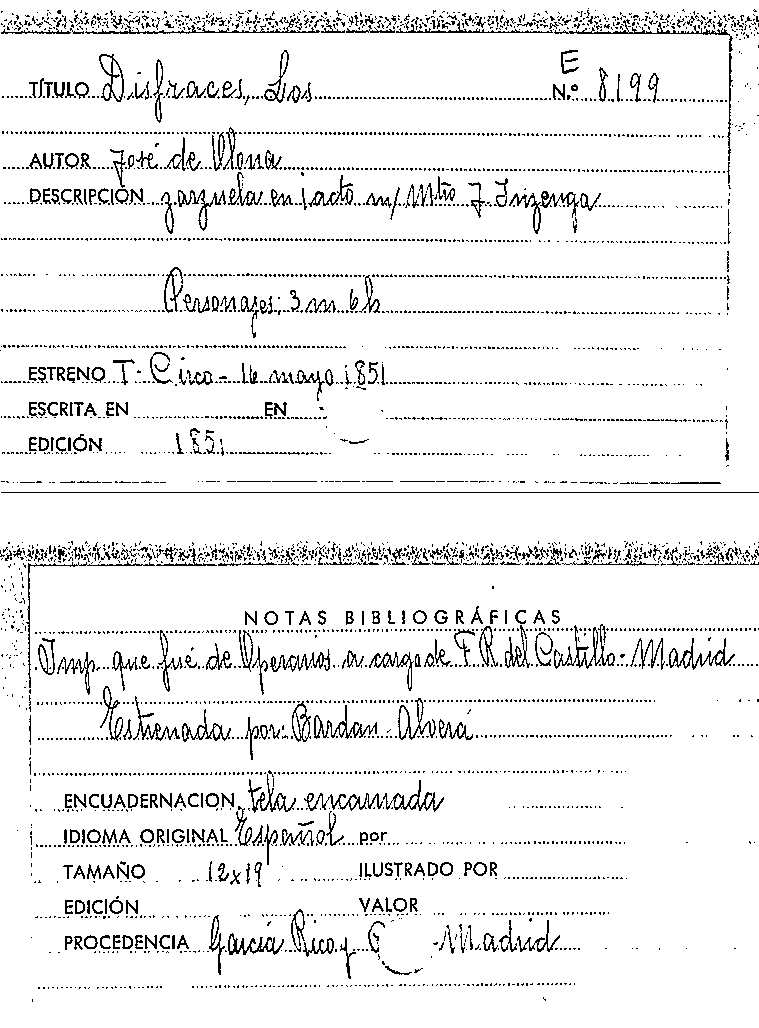 E
TÍTULO Disfraces, Los N.º 8199
AUTOR José de Olona
DESCRIPCIÓN zarzuela en 1 acto m/ Mtro J. Inzenga
Personajes: 3 m 6 h
ESTRENO T. Circo - 16 mayo 1851
ESCRITA EN EN
EDICIÓN 1851
NOTAS BIBLIOGRÁFICAS
Imp. que fué de Operarios a cargo de F. R. del Castillo - Madrid
Estrenada por: Bardan - Alverá
ENCUADERNACION tela encarnada
IDIOMA ORIGINAL Español por
TAMAÑO 12x19 ILUSTRADO POR
EDICIÓN VALOR
PROCEDENCIA García Rico y - Madrid